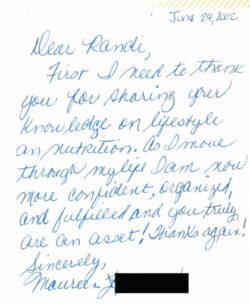 June 29, 2002
Dear Randi,
First I need to thank
you for sharing your
knowledge on lifestyle
an nutrition. As I move
through my life I am now
more confident, organized,
and fulfilled and you truly
are an asset! Thanks again!
Sincerely,
Maureen